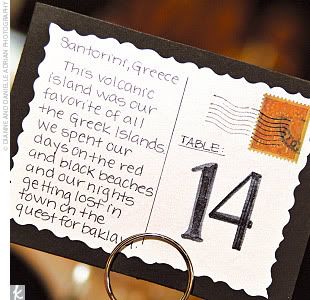 Santorini, Greece
This volcanic
island was our
favorite of all
the Greek Islands.
We spent our
days on the red
and black beaches
and our nights
getting lost in
town on the
quest for baklava!
TABLE:
14
© DIANNE AND DANIELLE ADRIAN PHOTOGRAPHY